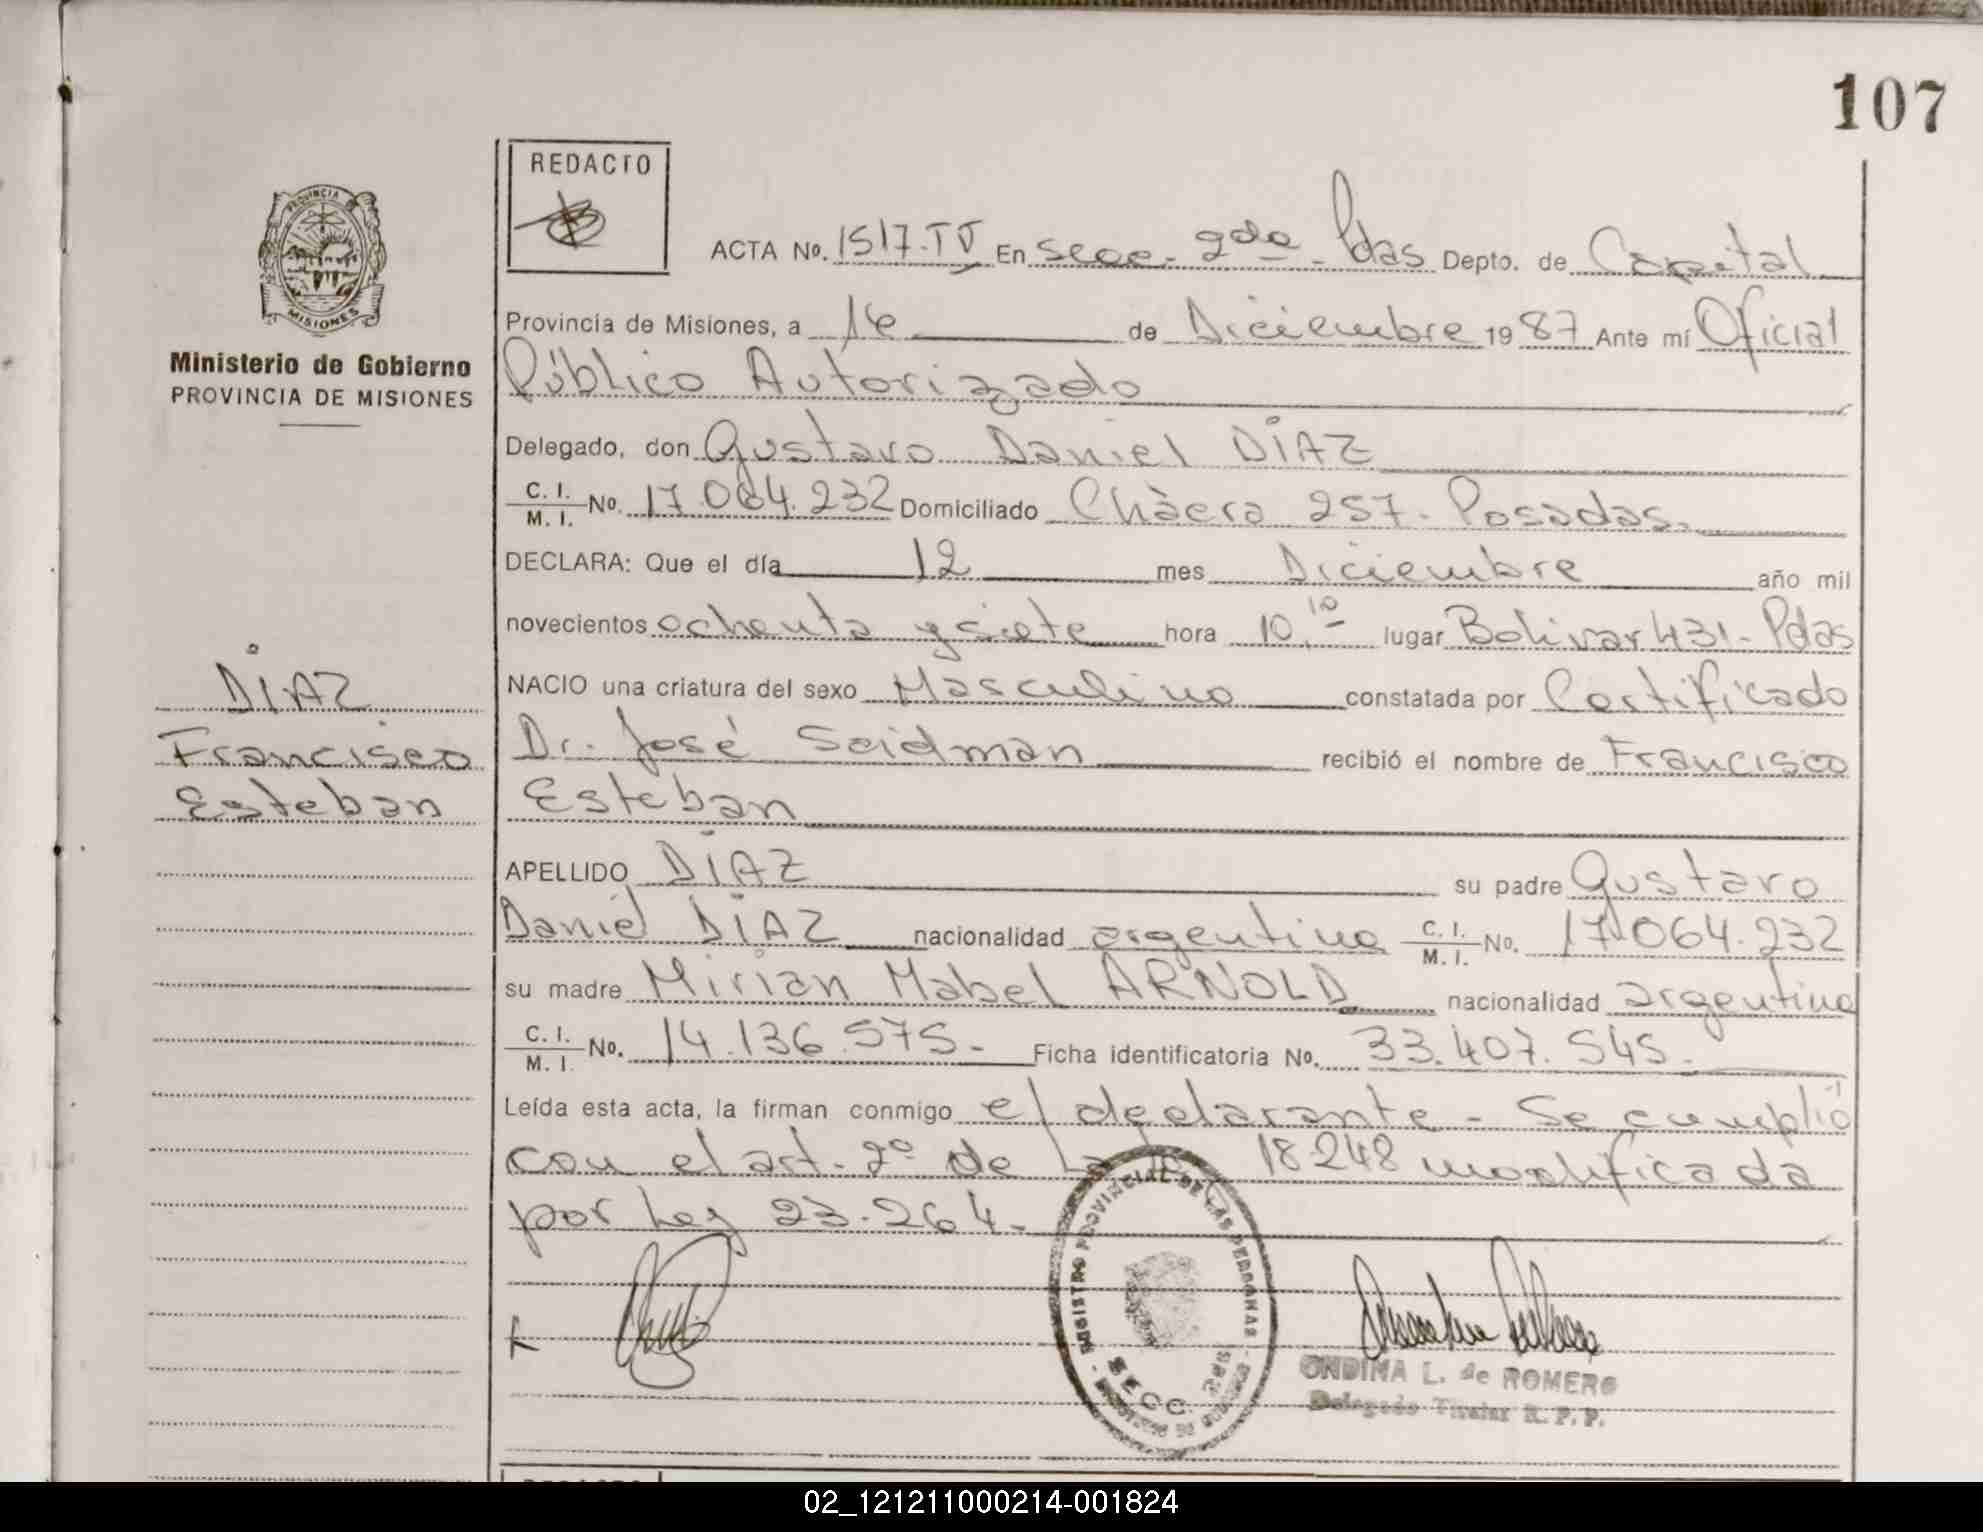 107
REDACTO
PROVINCIA DE
MISIONES
Ministerio de Gobierno
PROVINCIA DE MISIONES
ACTA No. 1517.TV En secc. 2da - Pdas Depto. de Capital
Provincia de Misiones, a 16 de Diciembre 1987 Ante mí Oficial
Público Autorizado
Delegado, don Gustavo Daniel DIAZ
C. I. / M. I. No. 17.064.232 Domiciliado Chàcra 257. Posadas.
DECLARA: Que el día 12 mes Diciembre año mil
novecientos ochenta y siete hora 10,10 lugar Bolivar 431- Pdas
NACIO una criatura del sexo Masculino constatada por Certificado
Dr. José Seidman recibió el nombre de Francisco
Esteban
APELLIDO DIAZ su padre Gustavo
Daniel DIAZ nacionalidad argentina C. I. / M. I. No. 17.064.232
su madre Mirian Mabel ARNOLD nacionalidad argentina
C. I. / M. I. No. 14.136.575- Ficha identificatoria No. 33.407.545-
Leída esta acta, la firman conmigo el declarante - Se cumplió
con el art. 2º de La 18248 modificada
por Ley 23.264-
DIAZ
Francisco
Esteban
REGISTRO PROVINCIAL DE LAS PERSONAS
SECC.
ONDINA L. de ROMERO
Delegado Titular R. P. P.
02_121211000214-001824